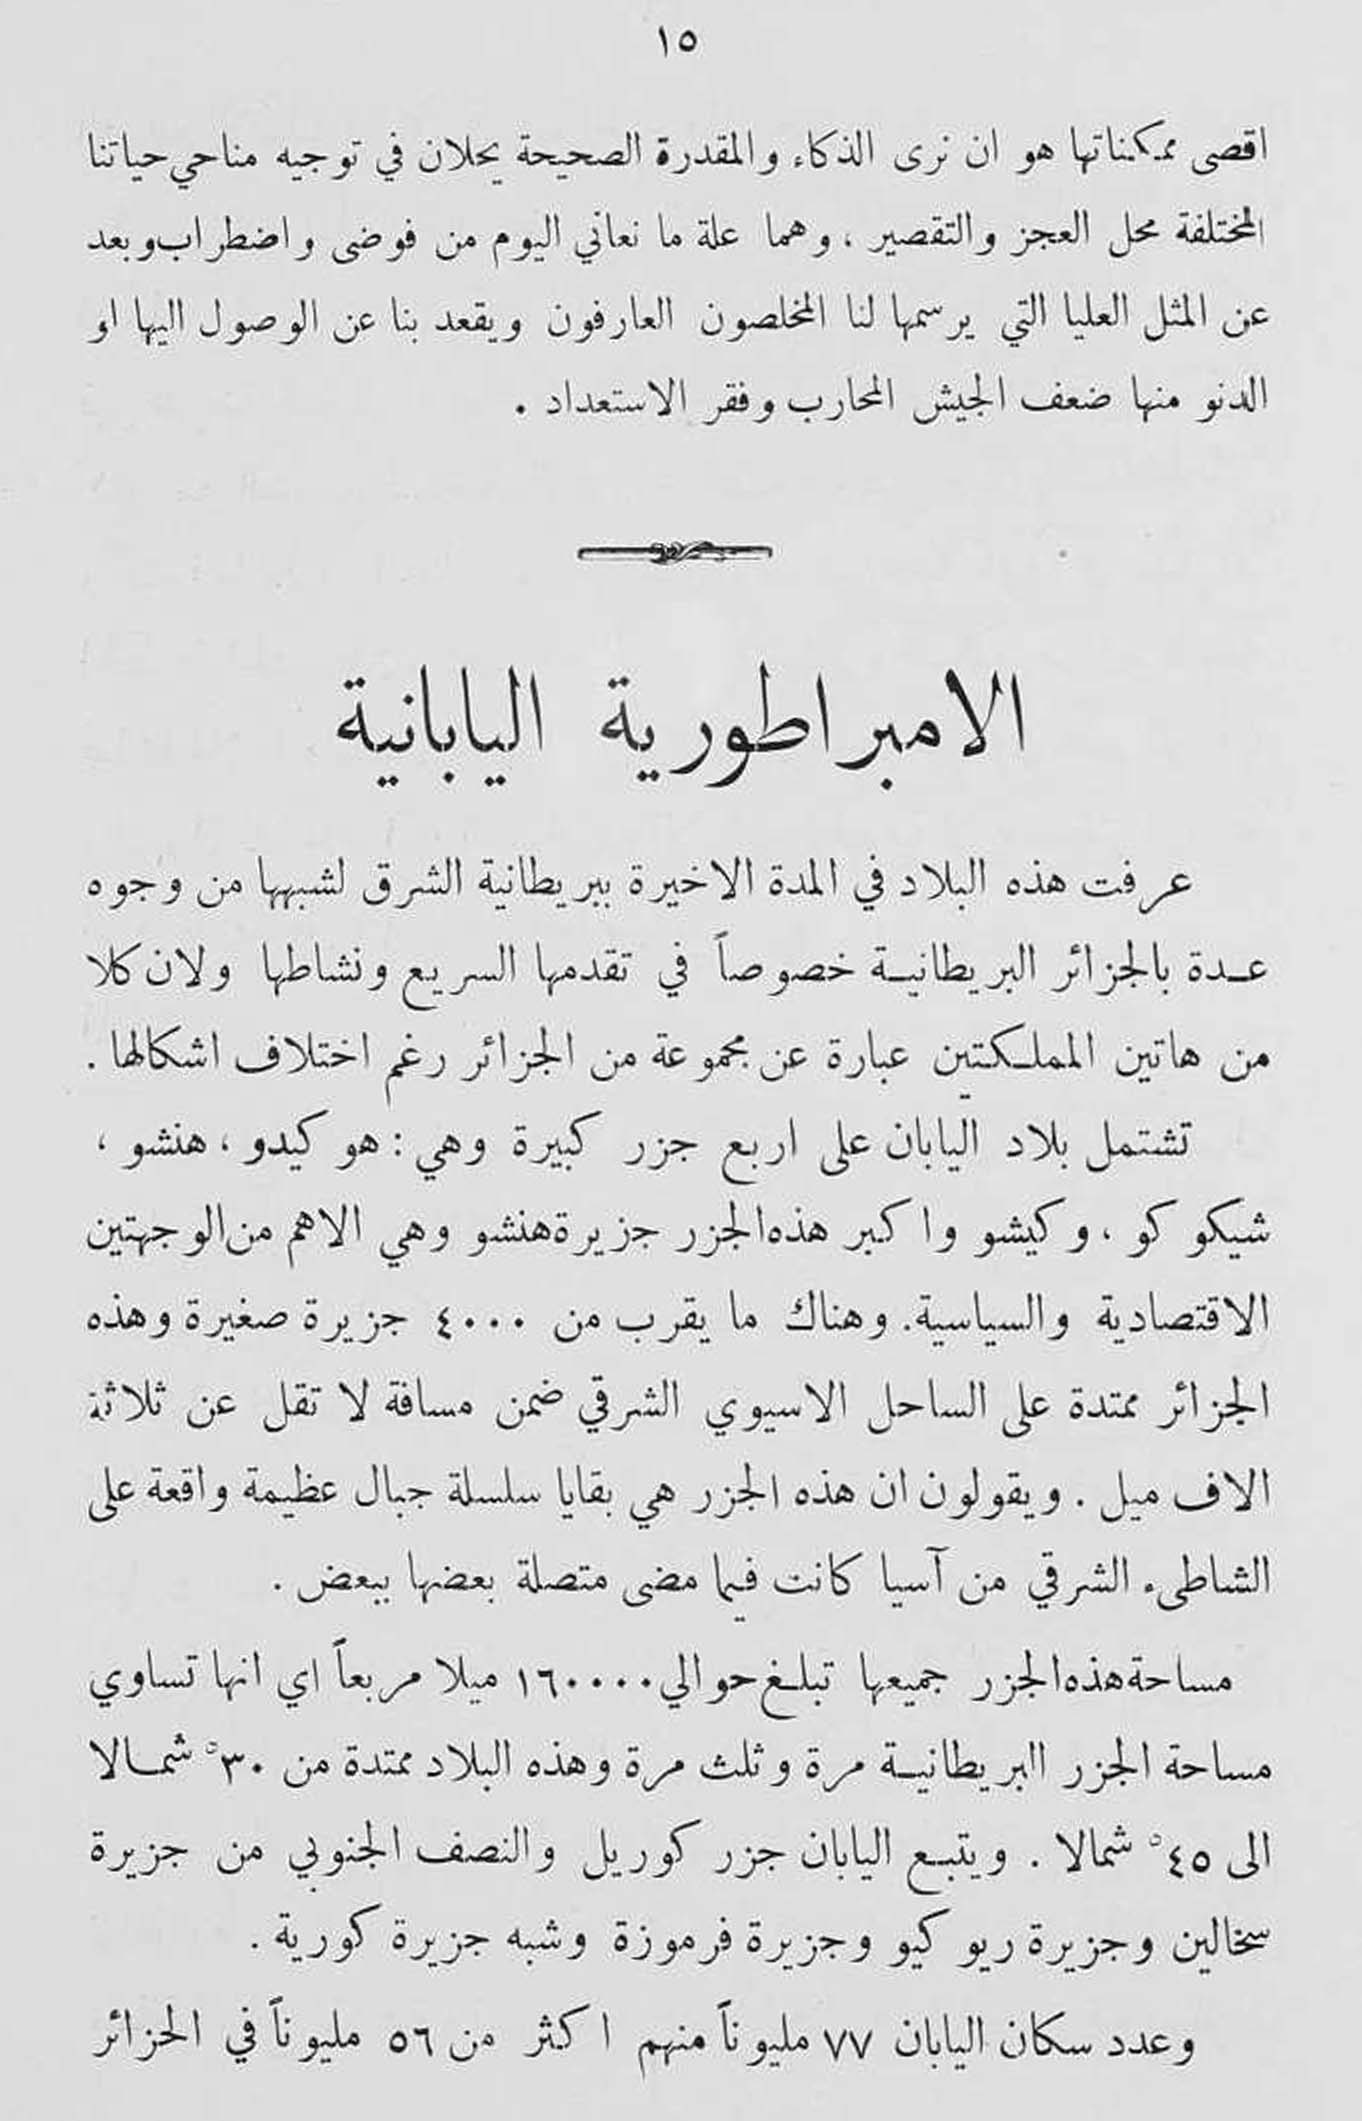 ١٥
اقصى ممكناتها هو ان نرى الذكاء والمقدرة الصحيحة يحلان في توجيه مناحي حياتنا
المختلفة محل العجز والتقصير ، وهما علة ما نعاني اليوم من فوضى واضطراب وبعد
عن المثل العليا التي يرسمها لنا المخلصون العارفون ويقعد بنا عن الوصول اليها او
الدنو منها ضعف الجيش المحارب وفقر الاستعداد .
الامبراطورية اليابانية
عرفت هذه البلاد في المدة الاخيرة ببريطانية الشرق لشبهها من وجوه
عـدة بالجزائر البريطانيـة خصوصاً في تقدمها السريع ونشاطها ولان كلا
من هاتين المملـكتين عبارة عن مجموعة من الجزائر رغم اختلاف اشكالها .
تشتمل بلاد اليابان على اربع جزر كبيرة وهي : هو كيدو ، هنشو ،
شيكو كو ، وكيشو واكبر هذه الجزر جزيرة هنشو وهي الاهم من الوجهتين
الاقتصادية والسياسية . وهناك ما يقرب من ٤٠٠٠ جزيرة صغيرة وهذه
الجزائر ممتدة على الساحل الاسيوي الشرقي ضمن مسافة لا تقل عن ثلاثة
الاف ميل . ويقولون ان هذه الجزر هي بقايا سلسلة جبال عظيمة واقعة على
الشاطىء الشرقي من آسيا كانت فيما مضى متصلة بعضها ببعض .
مساحة هذه الجزر جميعها تبلـغ حوالي ١٦٠٠٠٠ ميلا مربعاً اي انها تساوي
مساحة الجزر البريطانيـة مرة وثلث مرة وهذه البلاد ممتدة من ٣٠° شمـالا
الى ٤٥° شمالا . ويتبـع اليابان جزر كوريل والنصف الجنوبي من جزيرة
سخالين وجزيرة ريو كيو وجزيرة فرموزة وشبه جزيرة كورية .
وعدد سكان اليابان ٧٧ مليوناً منهم اكثر من ٥٦ مليوناً في الجزائر